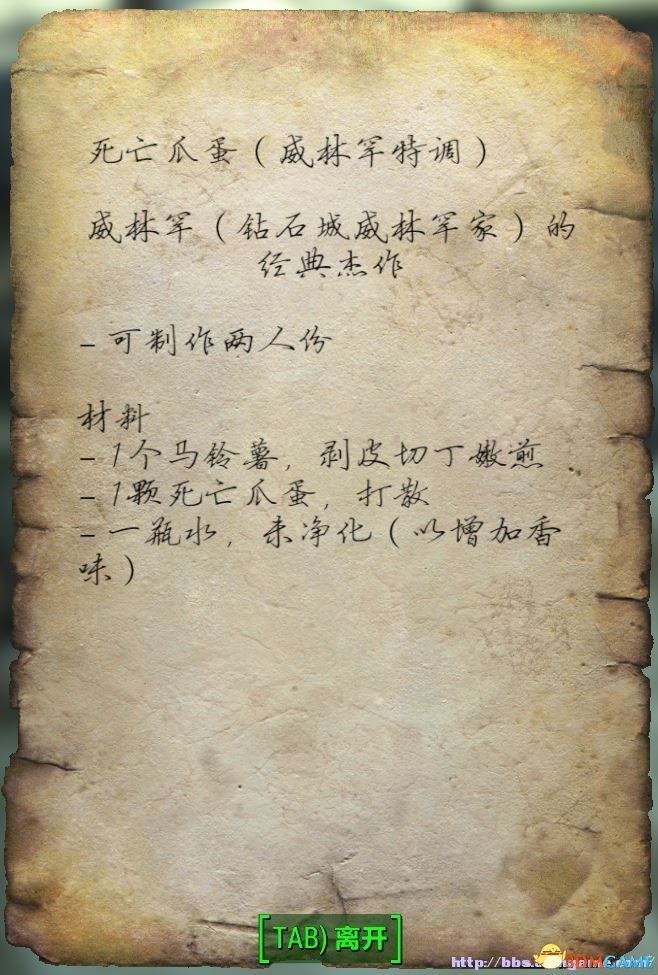 死亡爪蛋（威林罕特调）
威林罕（钻石城威林罕家）的
经典杰作
- 可制作两人份
材料
- 1个马铃薯，剥皮切丁嫩煎
- 1颗死亡爪蛋，打散
- 一瓶水，未净化（以增加香
味）
[TAB) 离开]
http://bbs.